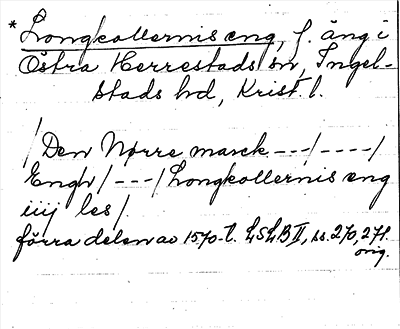 * Longkollernis eng, f. äng i
Östra Herrestads sn, Ingel-
stads hd, Krist. l.
/Den Nørre marck ---/----/
Engh/---/Longkollernis eng
iiij les/.
förra delen av 1570-t. LSLB II, ss. 270, 271.
orig.